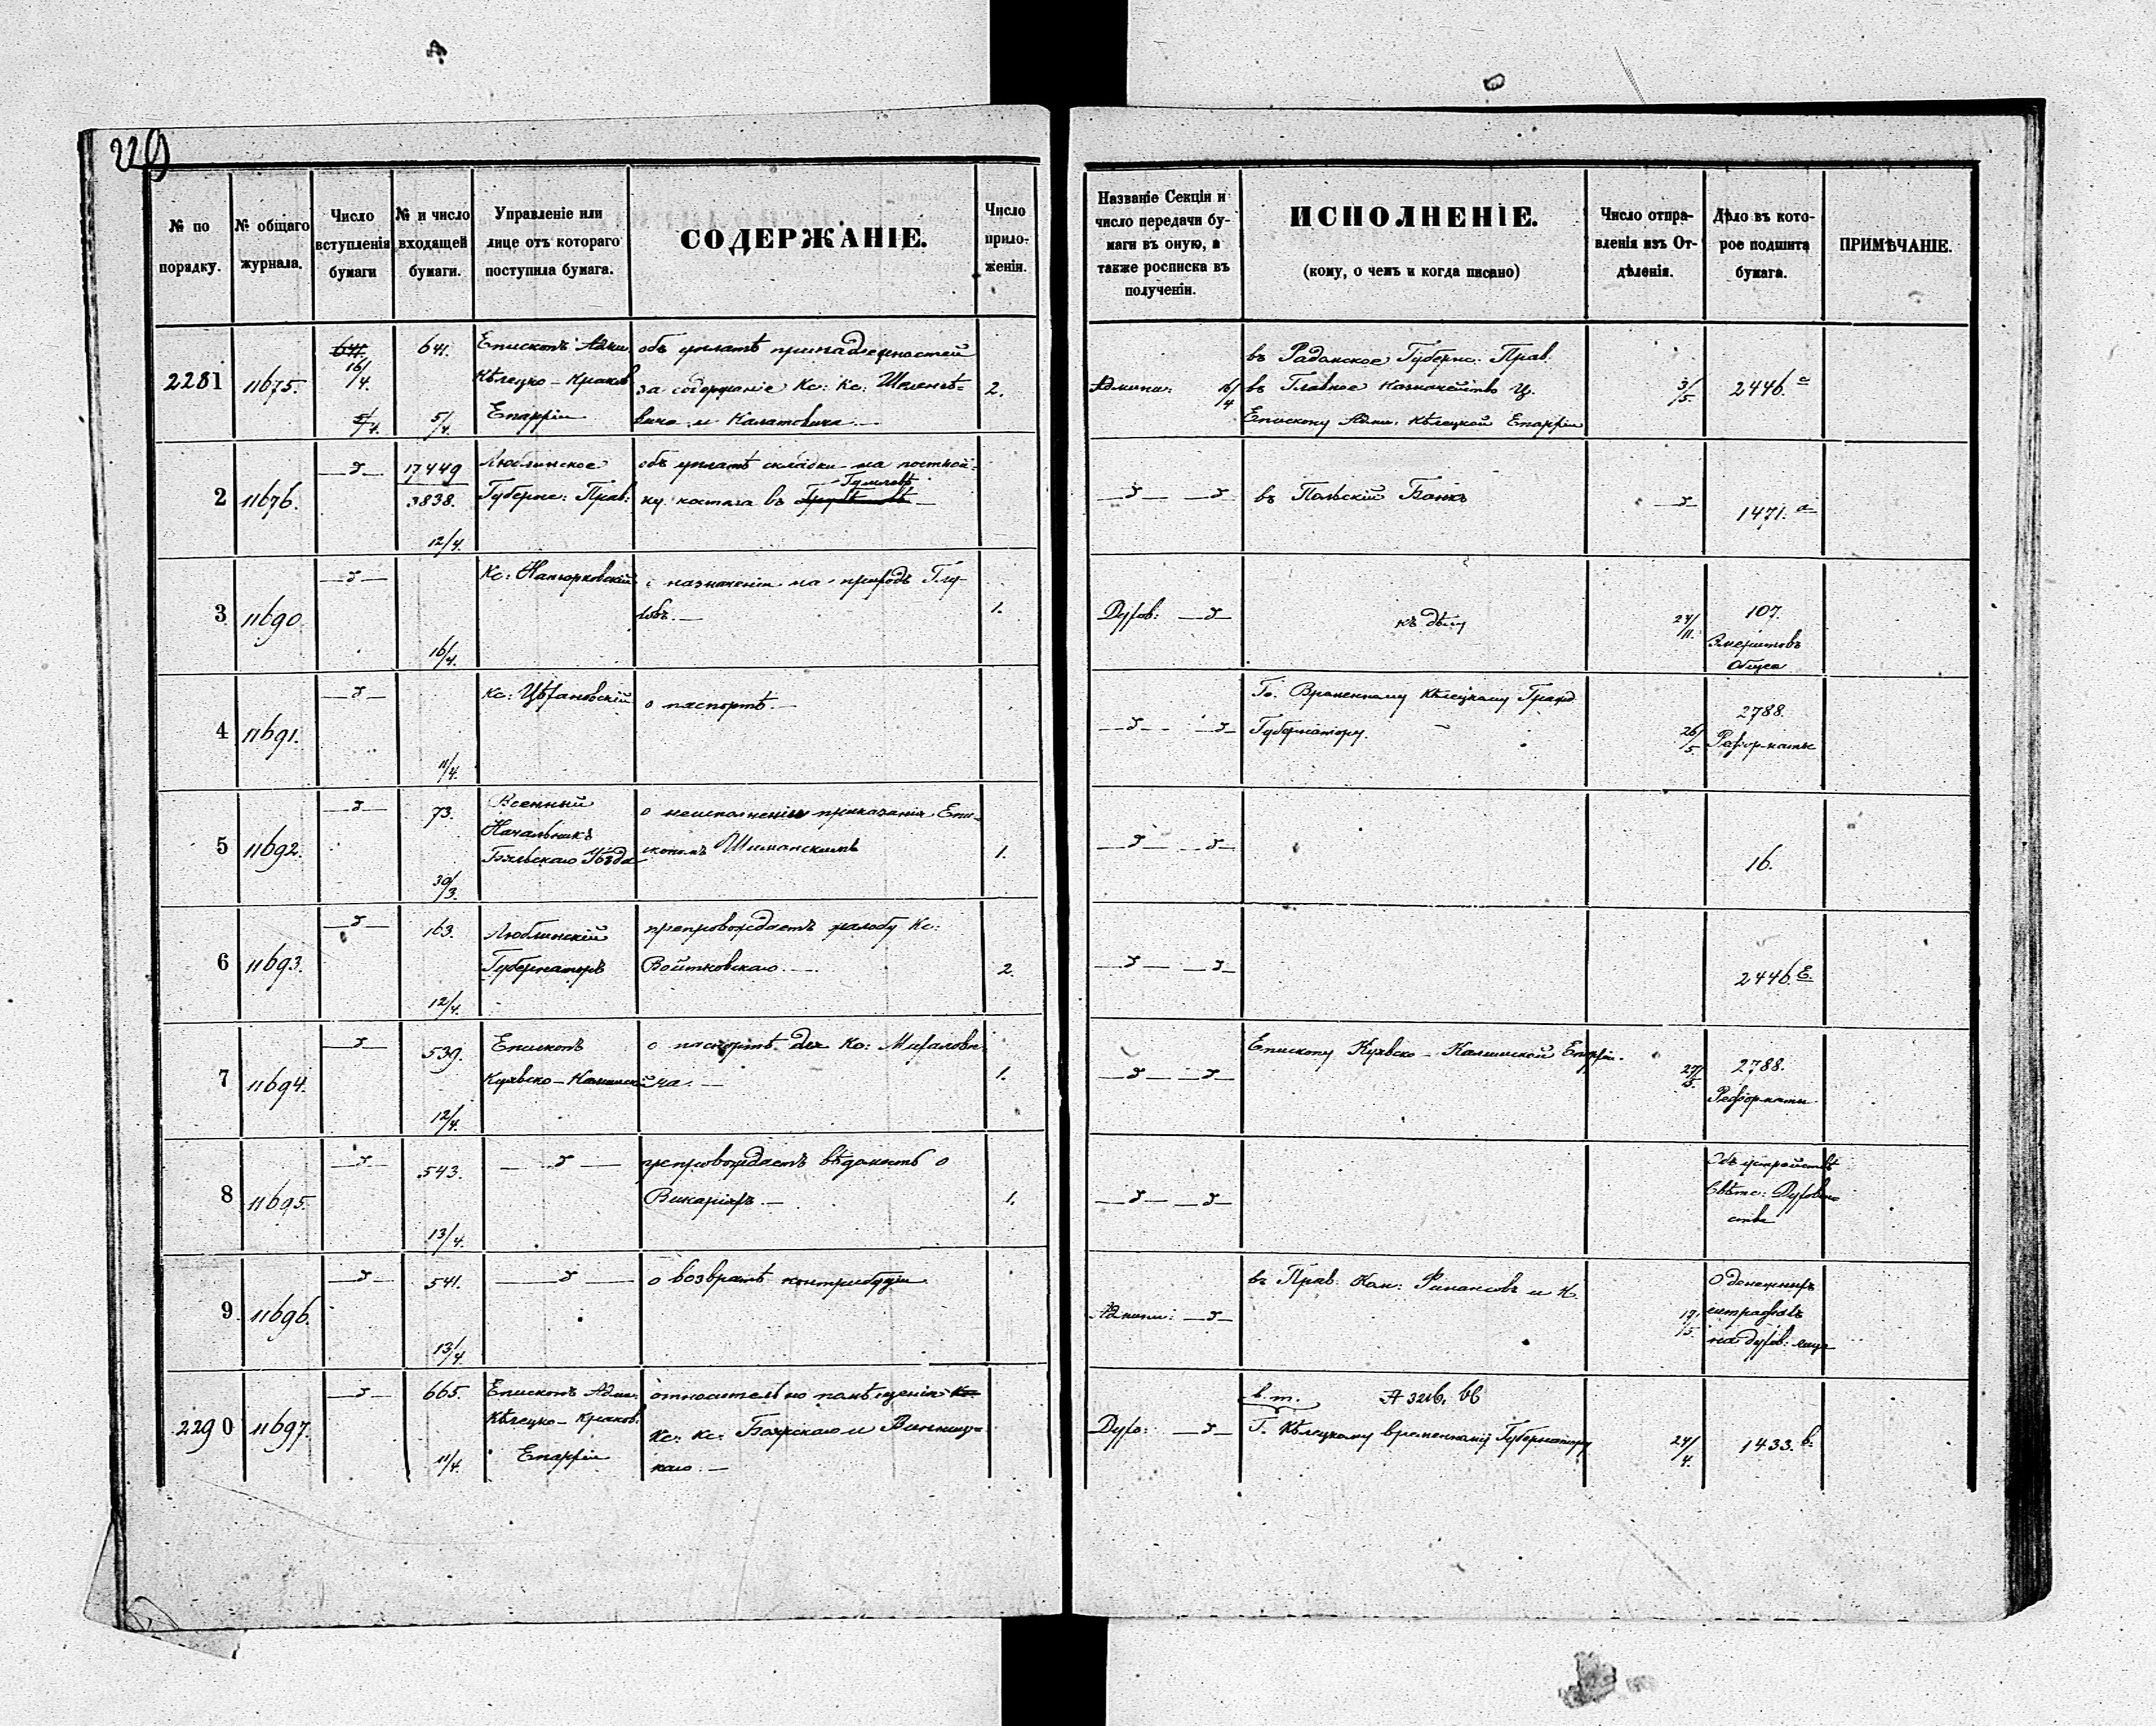 229
№ по порядку.
№ общаго журнала.
Число вступленія бумаги
№ и число входящей бумаги.
Управленіе или лице отъ котораго поступила бумага.
СОДЕРЖАНІЕ.
Число приложеній.
Названіе Секціи и число передачи бумаги въ оную, а также росписка въ полученіи.
ИСПОЛНЕНІЕ.
(кому, о чемъ и когда писано)
Число отправленія изъ Отдѣленія.
Дѣло въ которое подшита бумага.
ПРИМѢЧАНІЕ.
2281
11675.
16/4.
641.
5/4.
Епископъ Адми.
Кѣлецко-Краков
Епархіи
объ уплатѣ принадлежностей
за содержаніе Кс: Кс:
2.
Админи: 16/4
въ Радомское Губернс: Прав.
въ Главное Казначейство Ц.
Епископу Адми: Кѣлецкой Епархіи
3/5.
2446. с
2
11676.
17449
3838.
12/4.
Люблинское
Губернс: Прав:
объ уплатѣ складки на построй-
ку костела въ
въ Польскій Банкъ
1471. а
3
11690
16/4.
Кс:
о назначеніи на приходъ
1.
Духов:
къ дѣлу
27/11.
107.
Эмеритовъ
Общее
4
11691.
11/4.
Кс: Цѣхановскій
о паспортѣ.
Г. Временному Кѣлецкому Гражд
Губернатору.
26/5
2788.
Реформаты
5
11692.
73.
30/3.
Военный
Начальникъ
Бѣльскаго Уѣзда
о неисполненіи приказанія Епи-
скопомъ Шиманскимъ
1.
16.
6
11693.
163.
12/4.
Люблинскій
Губернаторъ
препровождаетъ жалобу Кс:
Войтковскаго.
2.
2446. Е.
7
11694.
539.
12/4.
Епископъ
Куявско-Калишской
о паспортѣ для Кс: Михалови-
ча.
1.
Епископу Куявско-Калишской Епархіи.
27/5.
2788.
Реформаты
8
11695.
543.
13/4.
препровождаетъ вѣдомость о
Викаріяхъ.
1.
Объ устройствѣ
Свѣтс: Духовен-
ства
9
11696.
541.
13/4.
о возвратѣ контрибуціи
Админи:
въ Прав. Ком: Финансовъ и К.
17/5.
О денежныхъ
штрафовъ
на духов: лица
2290
11697.
665.
11/4.
Епископъ Адми.
Кѣлецко-Краков.
Епархіи
относительно помѣщенія
Кс: Кс: Боярскаго и
каго.
Духо:
в. т.
Г. Кѣлецкому временному Губернатору
24/4.
1433. в.